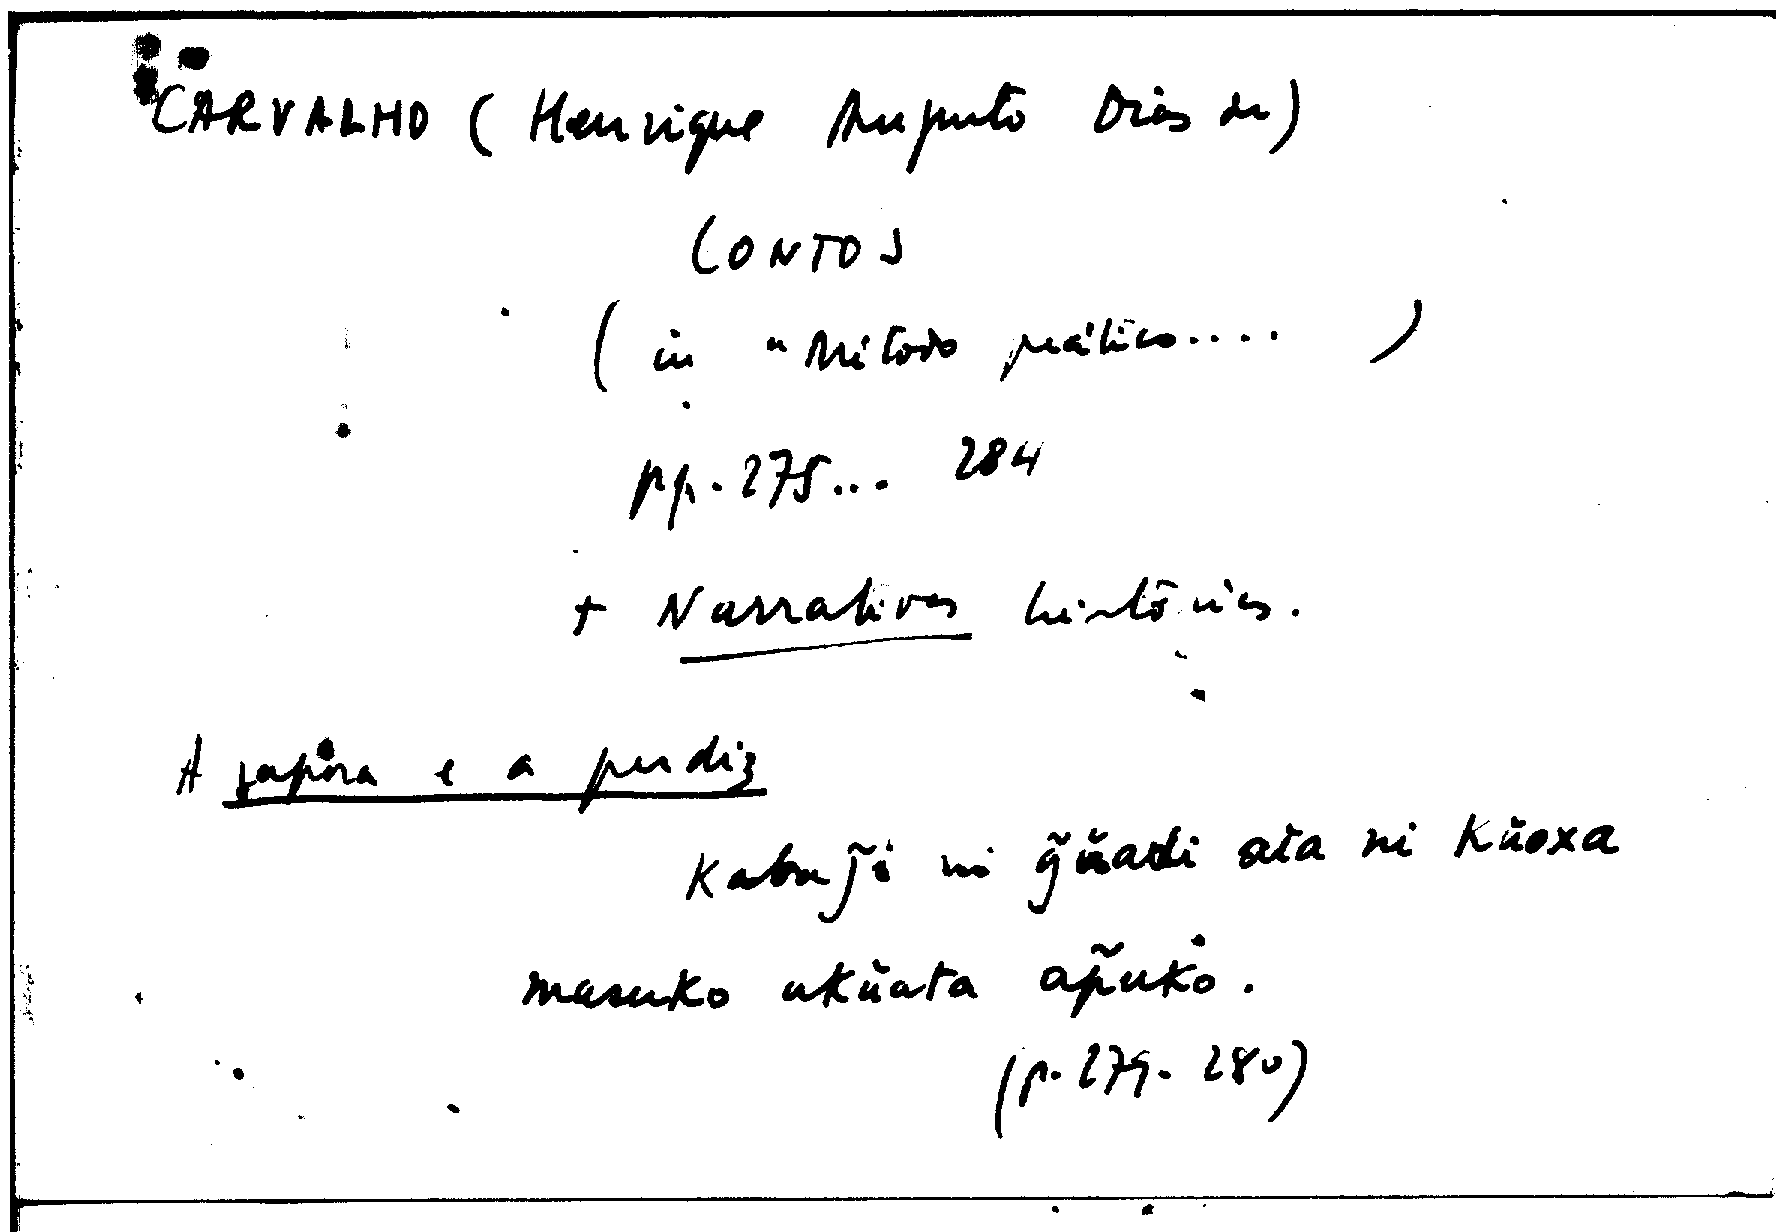 CARVALHO (Henrique Augusto Dias de)
CONTOS
(in "Método prático.... )
pp. 275... 284
+ Narrativas históricas.
A raposa e a perdiz
Kabuj̃i ni g̃ŭadi aia ni Kŭoxa
masuko ukŭata ap̃uko.
(p. 279. 280)